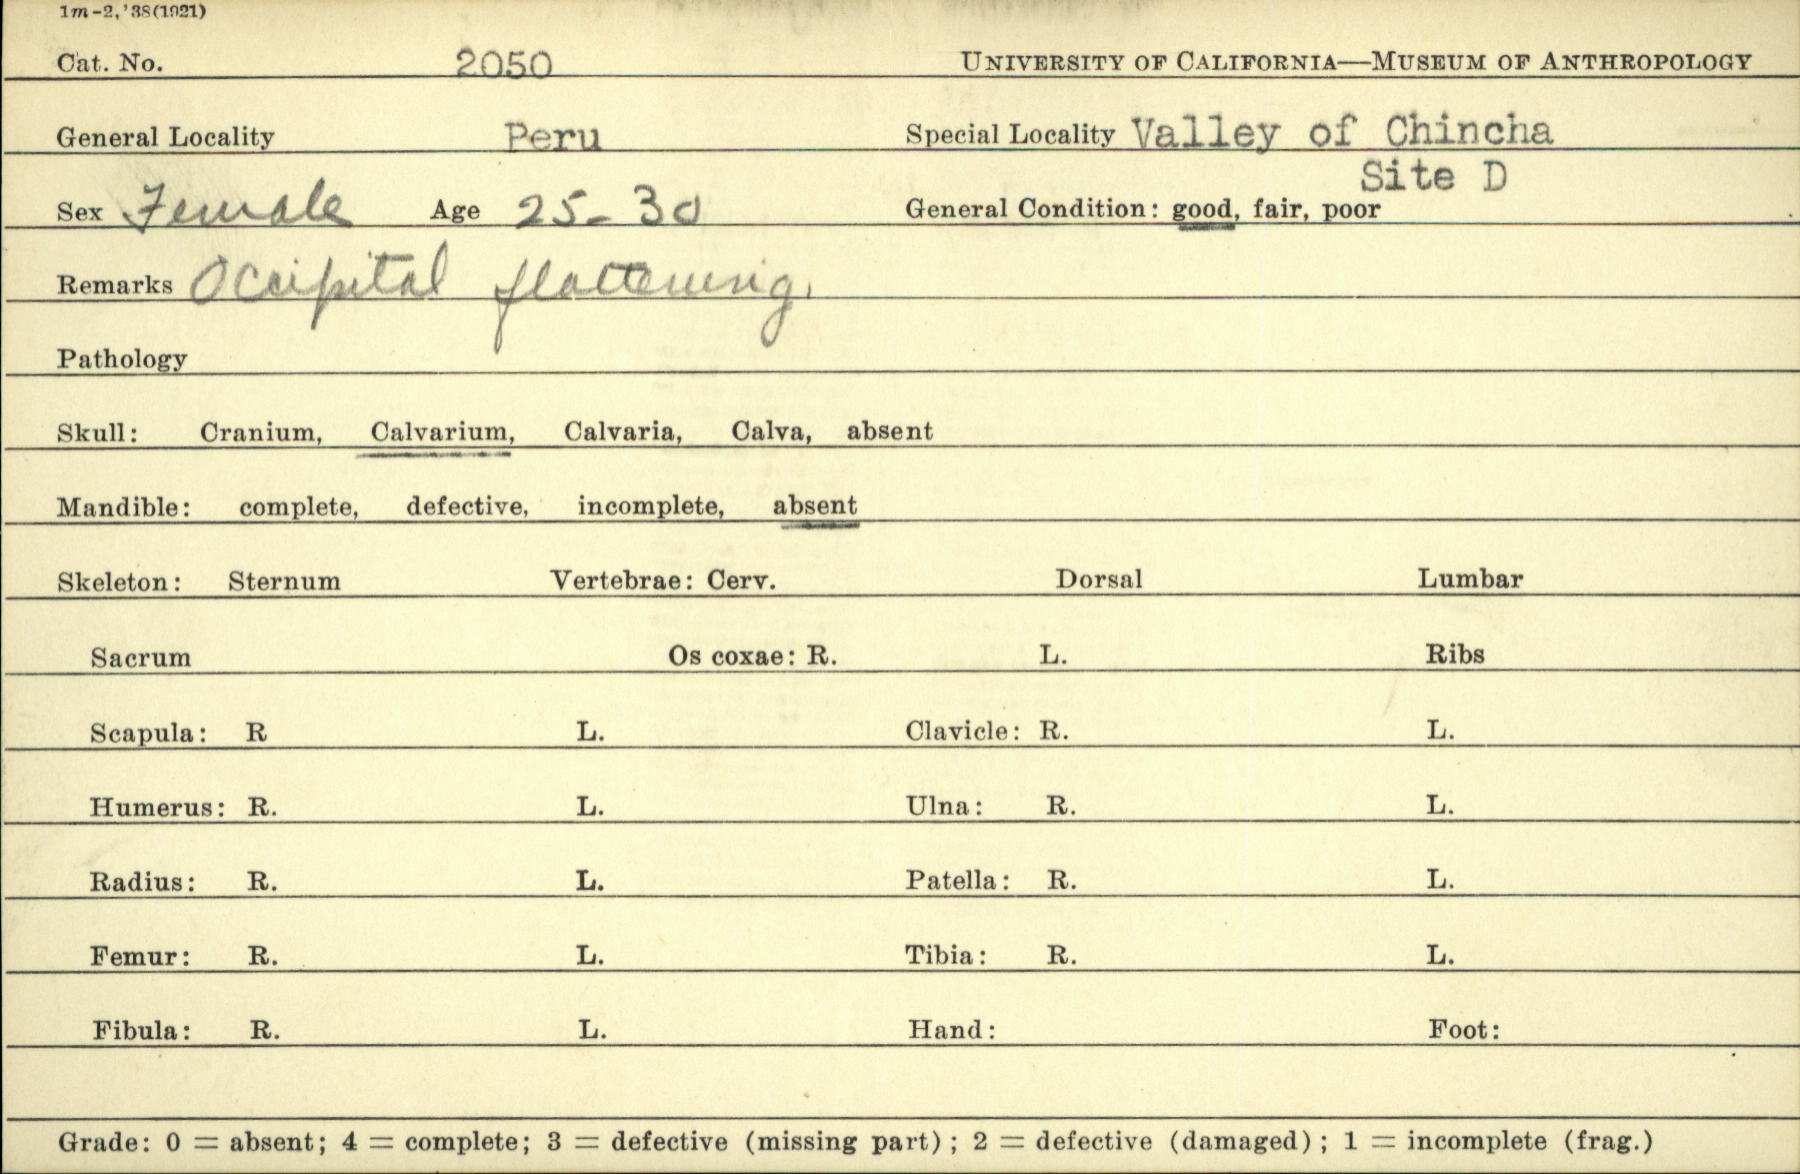 1m-2,'38(1921)
Cat. No. 2050 UNIVERSITY OF CALIFORNIA—MUSEUM OF ANTHROPOLOGY
General Locality Peru Special Locality Valley of Chincha
Site D
Sex Female Age 25-30 General Condition: good, fair, poor
Remarks Occipital flattening.
Pathology
Skull: Cranium, Calvarium, Calvaria, Calva, absent
Mandible: complete, defective, incomplete, absent
Skeleton: Sternum Vertebrae: Cerv. Dorsal Lumbar
Sacrum Os coxae: R. L. Ribs
Scapula: R L. Clavicle: R. L.
Humerus: R. L. Ulna: R. L.
Radius: R. L. Patella: R. L.
Femur: R. L. Tibia: R. L.
Fibula: R. L. Hand: Foot:
Grade: 0 = absent; 4 = complete; 3 = defective (missing part); 2 = defective (damaged); 1 = incomplete (frag.)